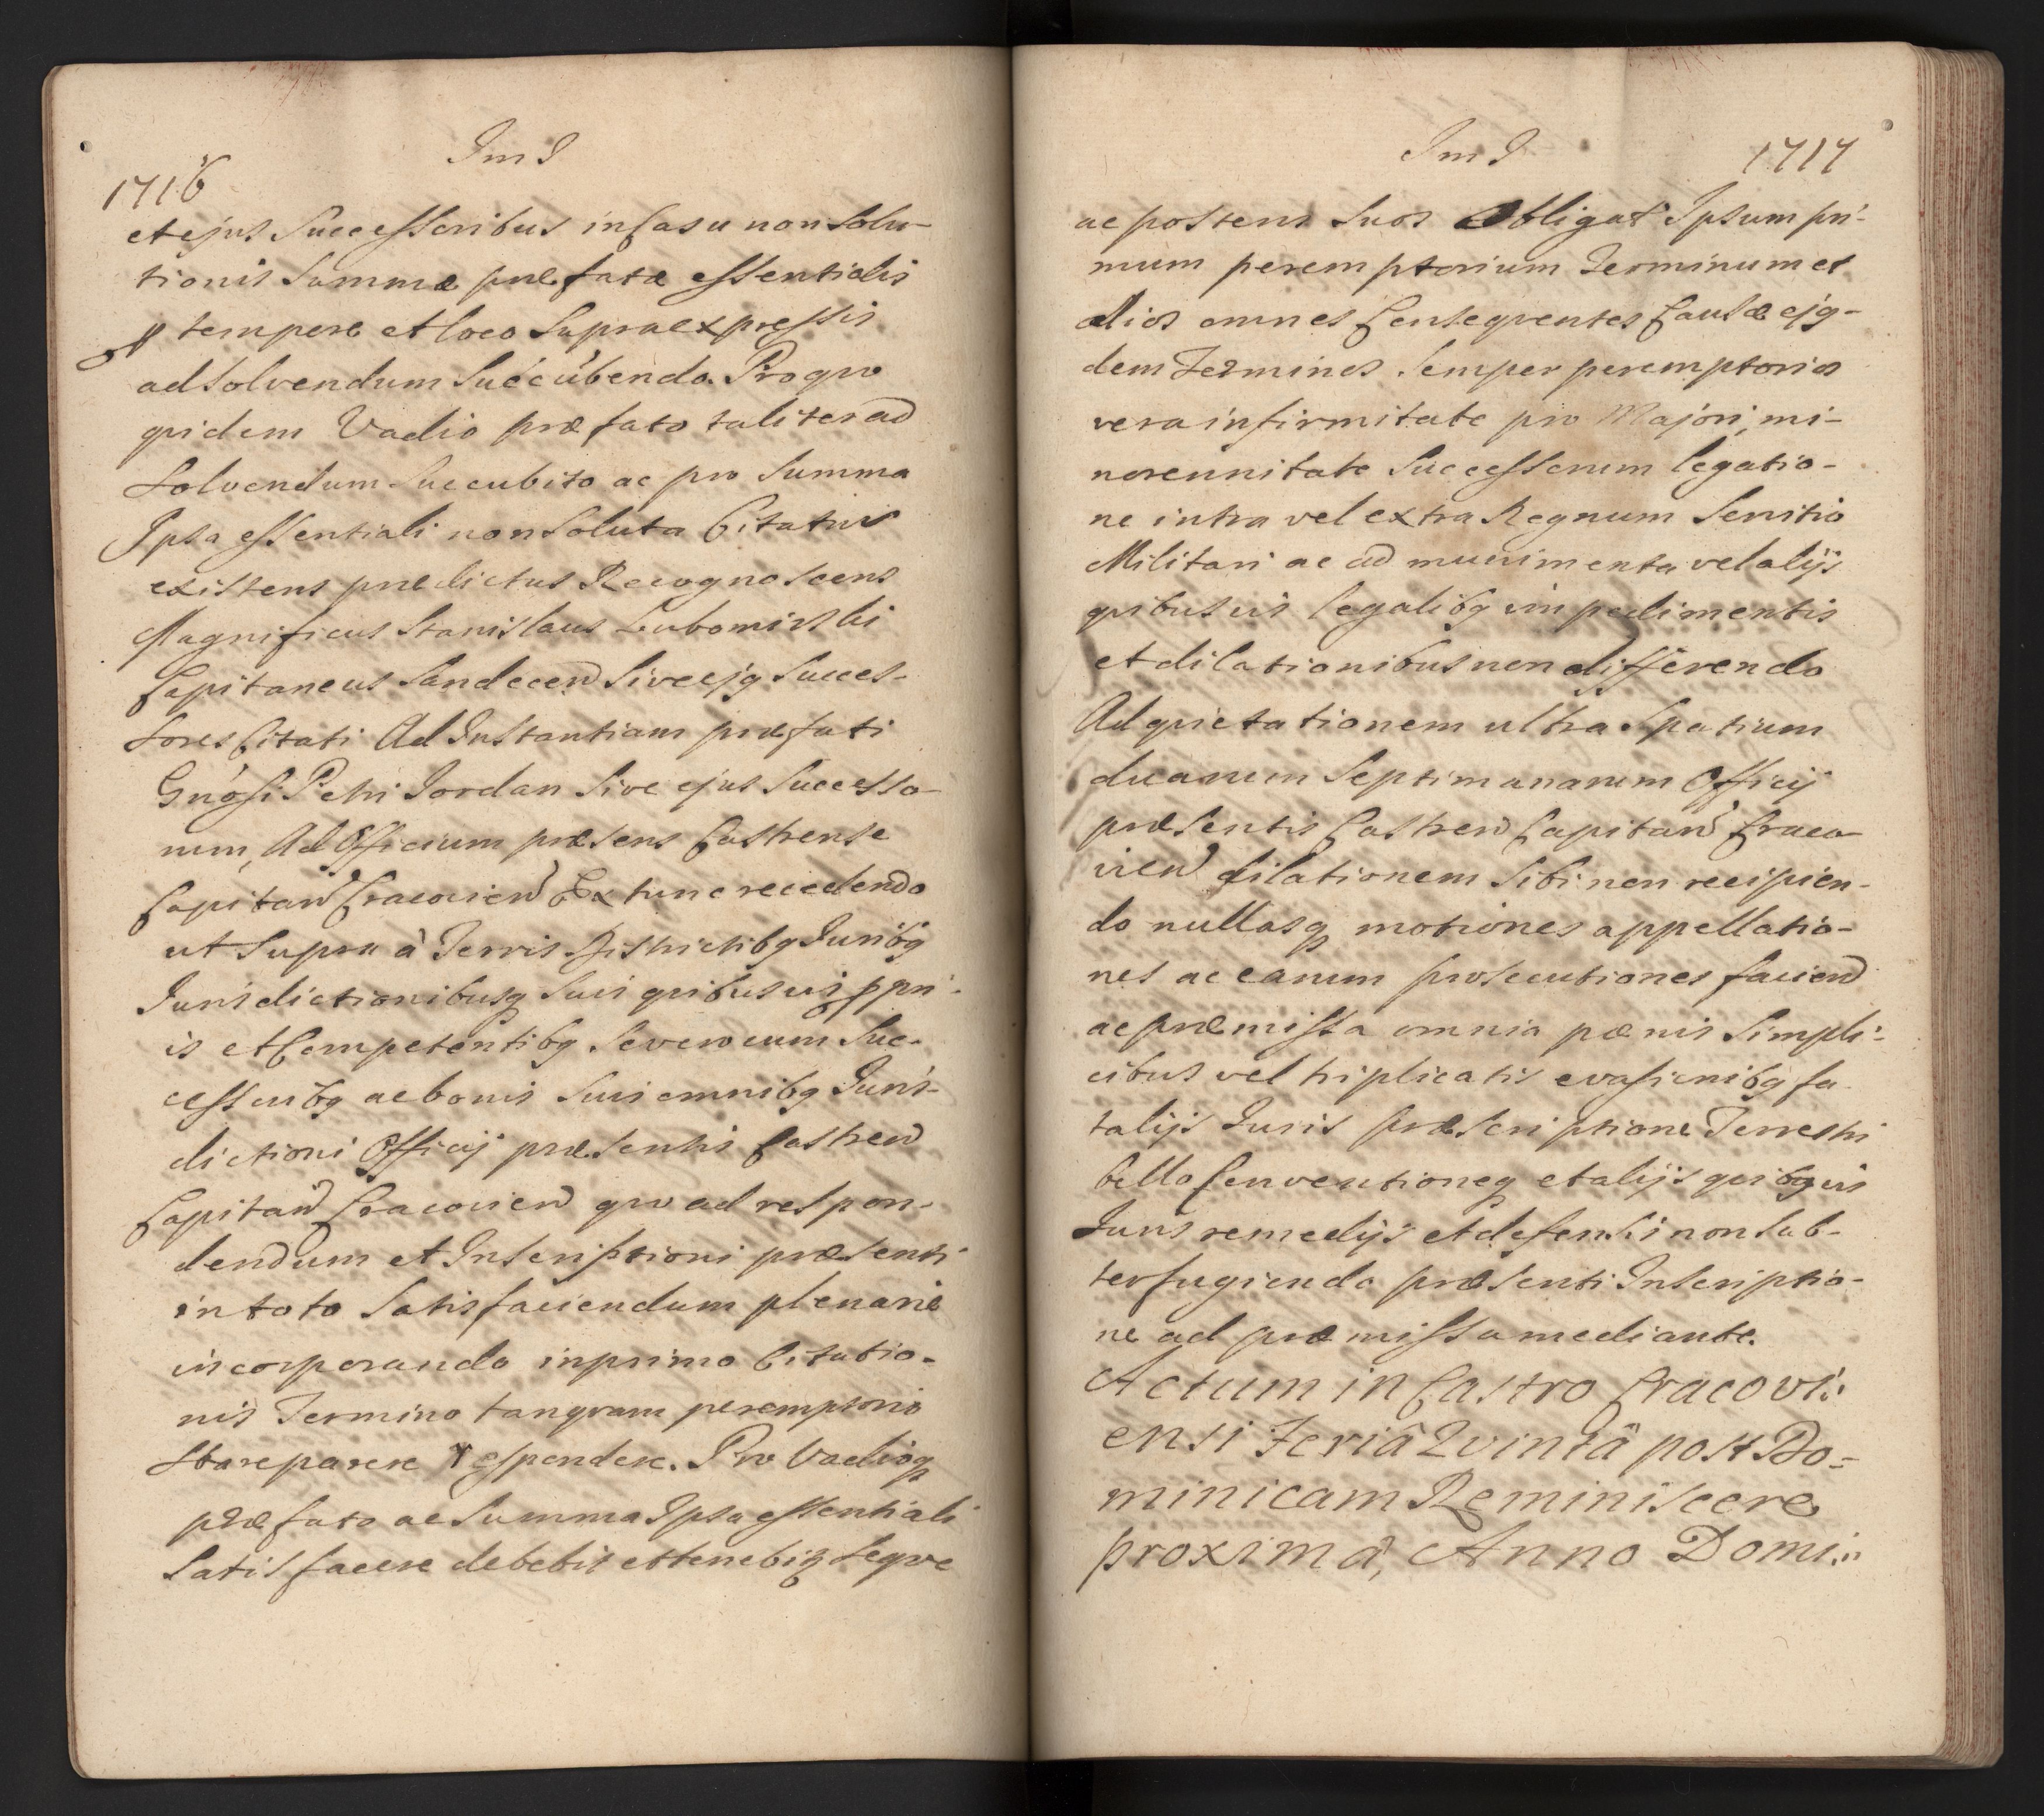 Im I
1716
et ejus Successoribus in Casu non Solu-
tionis Summæ præfatæ essentialis
tempore et loco Supraexpressis
ad Solvendum Succubendo. Pro quo
quidem Vadio præfato taliter ad
Solvendum Succubito ac pro Summa
Ipsa essentiali non Soluta Citatus
existens prædictus Recognoscens
Magnificus Stanislaus Lubomirski
Capitaneus Sandecen Sive ejq Succes-
sores Citati Ad Instantiam præfati
Gnosi Petri Jordan Sive ejus Successo-
rum, Ad Officium præsens Castrense
Capitan Cracovien Ex tunc recedendo
ut Supra à Terris Districtibq Juribq
Jurisdictionibusq Suis quibusvis ppri-
is et Competentibq Severo cum Suc-
cessoribq ac bonis Suis omnibq Juris-
dictioni Officij præsentis Castren
Capitan Cracovien quo ad respon-
dendum et Inscriptioni præsenti
in toto Satisfaciendum plenarie
incorporando in primo Citatio-
nis Termino tanquam peremptorio
Stare parere Respondere. Pro Vadioq
præfato ac Summa Ipsa essentiali
Satisfacere debebit et tenebitz Seque
Im I
1717
ac posteros Suos Obligat Ipsum pri-
mum peremptorium Terminum et
alios omnes Consequentes Causæ ejq-
dem Terminos Semper peremptorios
vera infirmitate pro Majori, mi-
norennitate Successorum legatio-
ne intra vel extra Regnum Servitio
Militari ac ad munimenta vel alijs
quibusvis legalibq impedimentis
et dilationibus non differendo
Ad quietationem ultra Spatium
duarum Septimanarum Officij
præsentis Castren Capitan Craco-
vien dilationem Sibi non recipien-
do nullasq motiones appellatio-
nes ac earum prosecutiones facien
ac præmissa omnia pænis Simpli-
cibus vel triplicatis evasionibq fa-
talijs Juris præscriptione Terrestri
bello Conventioneq et alijs quibqvis
Juris remedijs et defensi non Sub-
terfugiendo præsenti Inscriptio-
ne ad præmissa mediante.
Actum in Castro Cracovi-
ensi Feriâ Qvintâ post Do-
minicam Reminiscere
proximâ, Anno Domi-